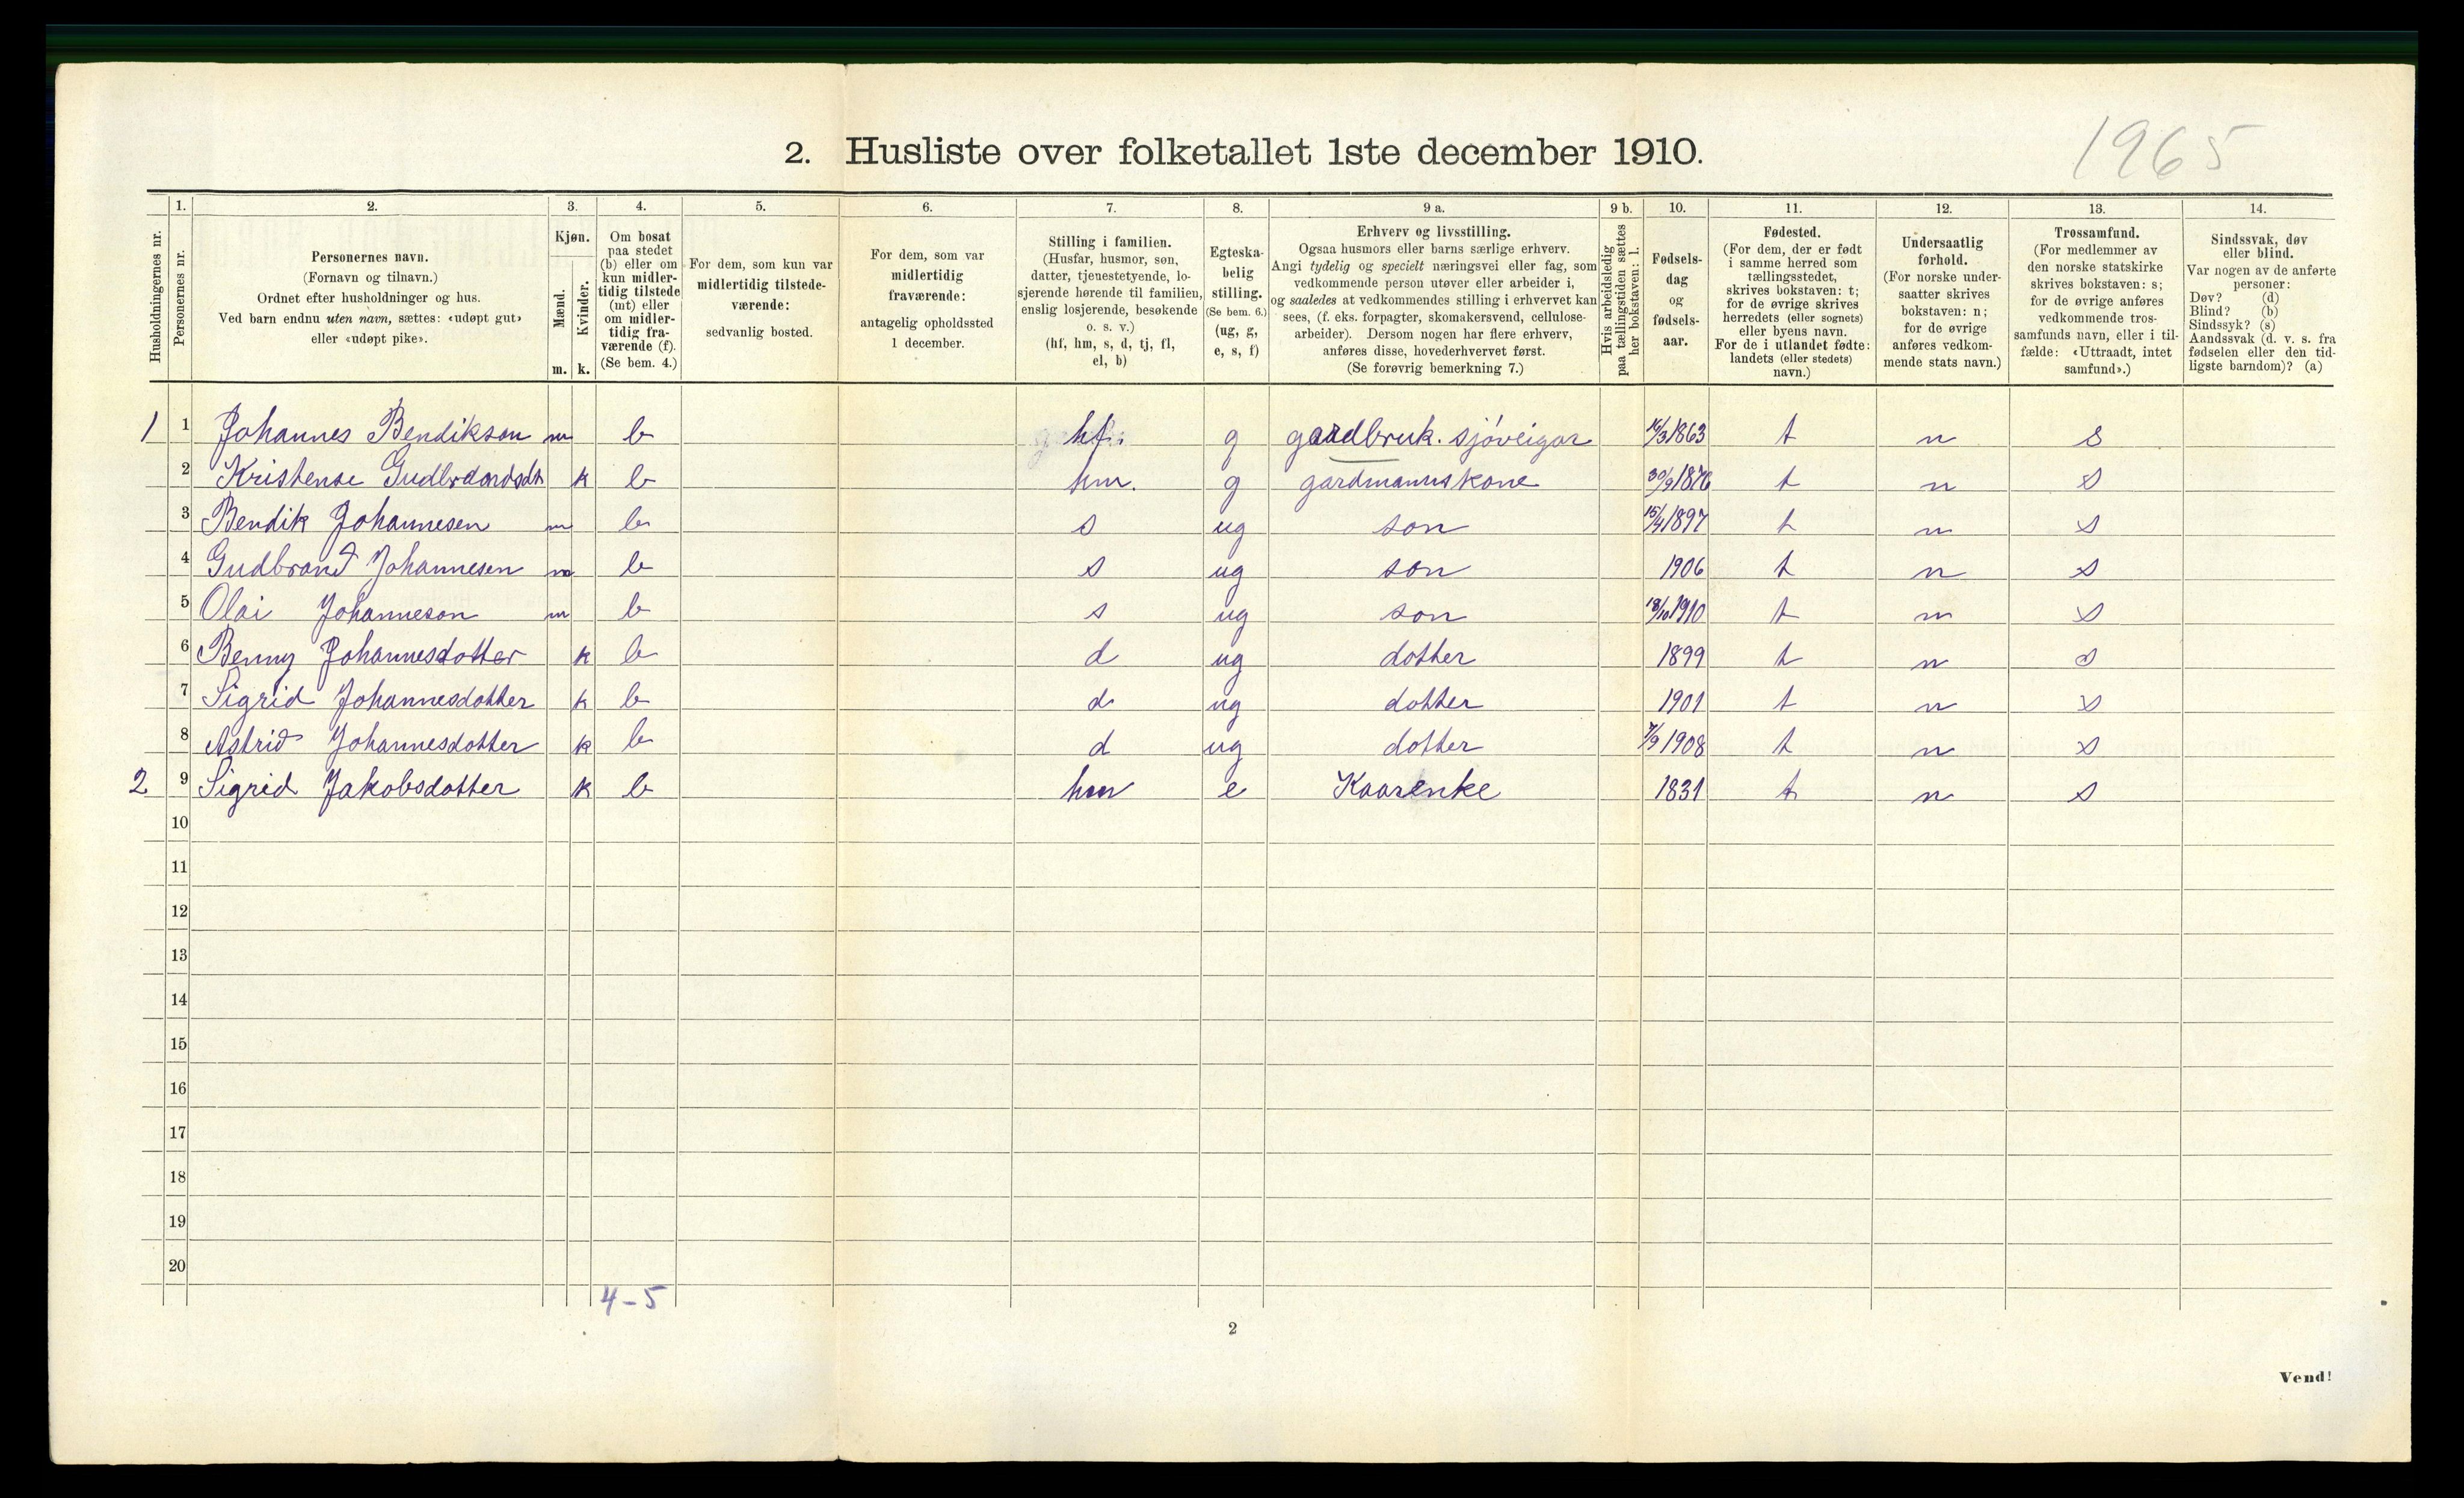 1965
2. Husliste over folketallet 1ste december 1910.
Husholdningernes nr.
1. Personernes nr.
2. Personernes navn.
(Fornavn og tilnavn.)
Ordnet efter husholdninger og hus.
Ved barn endnu uten navn, sættes: «udøpt gut»
eller «udøpt pike».
3. Kjøn.
Mænd. m.
Kvinder. k.
4. Om bosat
paa stedet
(b) eller om
kun midler-
tidig tilstede
(mt) eller
om midler-
tidig fra-
værende (f).
(Se bem. 4.)
5. For dem, som kun var
midlertidig tilstede-
værende:
sedvanlig bosted.
6. For dem, som var
midlertidig
fraværende:
antagelig opholdssted
1 december.
7. Stilling i familien.
(Husfar, husmor, søn,
datter, tjenestetyende, lo-
sjerende hørende til familien,
enslig losjerende, besøkende
o. s. v.)
(hf, hm, s, d, tj, fl,
el, b)
8. Egteska-
belig
stilling.
(Se bem. 6.)
(ug, g,
e, s, f)
9 a. Erhverv og livsstilling.
Ogsaa husmors eller barns særlige erhverv.
Angi tydelig og specielt næringsvei eller fag, som
vedkommende person utøver eller arbeider i,
og saaledes at vedkommendes stilling i erhvervet kan
sees, (f. eks. forpagter, skomakersvend, cellulose-
arbeider). Dersom nogen har flere erhverv,
anføres disse, hovederhvervet først.
(Se forøvrig bemerkning 7.)
9 b. Hvis arbeidsledig
paa tællingstiden sættes
her bokstaven: l.
10. Fødsels-
dag
og
fødsels-
aar.
11. Fødested.
(For dem, der er født
i samme herred som
tællingsstedet,
skrives bokstaven: t;
for de øvrige skrives
herredets (eller sognets)
eller byens navn.
For de i utlandet fødte:
landets (eller stedets)
navn.)
12. Undersaatlig
forhold.
(For norske under-
saatter skrives
bokstaven: n;
for de øvrige
anføres vedkom-
mende stats navn.)
13. Trossamfund.
(For medlemmer av
den norske statskirke
skrives bokstaven: s;
for de øvrige anføres
vedkommende tros-
samfunds navn, eller i til-
fælde: «Uttraadt, intet
samfund».)
14. Sindssvak, døv
eller blind.
Var nogen av de anførte
personer:
Døv? (d)
Blind? (b)
Sindssyk? (s)
Aandssvak (d. v. s. fra
fødselen eller den tid-
ligste barndom)? (a)
1 1 Johannes Bendikson m b hf. g gardbruk. sjóveigar 1863 t n s
2 Kristense Gudbrandsdt k b hm. g gardmannskone 30/9 1876 t n s
3 Bendik Johannesen m b s ug son 15/4 1897 t n s
4 Gudbrand Johannesen m b s ug son 1906 t n s
5 Olai Johanneson m b s ug son 18/10 1910 t n s
6 Benny Johannesdotter k b d ug dotter 1899 t n s
7 Sigrid Johannesdotter k b d ug dotter 1901 t n s
8 Astrid Johannesdotter k b d ug dotter 7/9 1908 t n s
2 9 Sigrid Jakobsdotter k b hm e Kaarenke 1831 t n s
10
11
12
13
14
15
16
17
18
19
20
4-5
2
Vend!